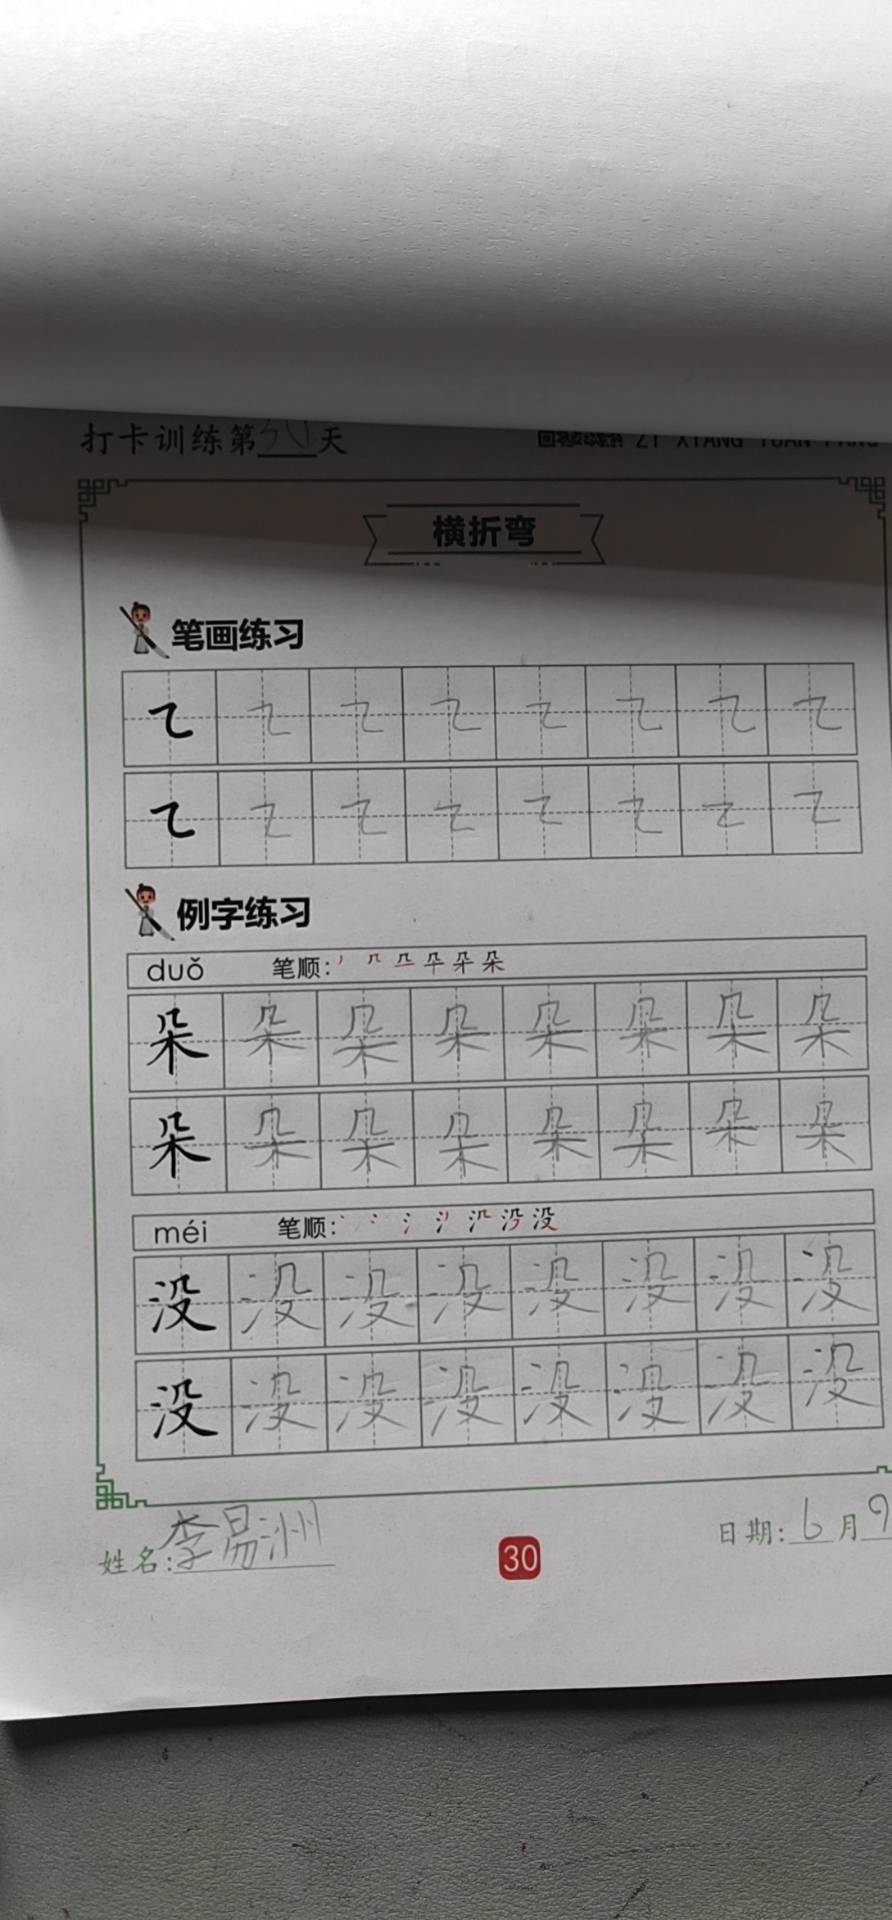 打卡训练第30天
横折弯
笔画练习
例字练习
duǒ 笔顺:
朵 朵 朵 朵 朵 朵 朵 朵
朵 朵 朵 朵 朵 朵 朵 朵
méi 笔顺: 没
没 没 没 没 没 没 没 没
没 没 没 没 没 没 没 没
姓名:李易洲
30
日期:6月9